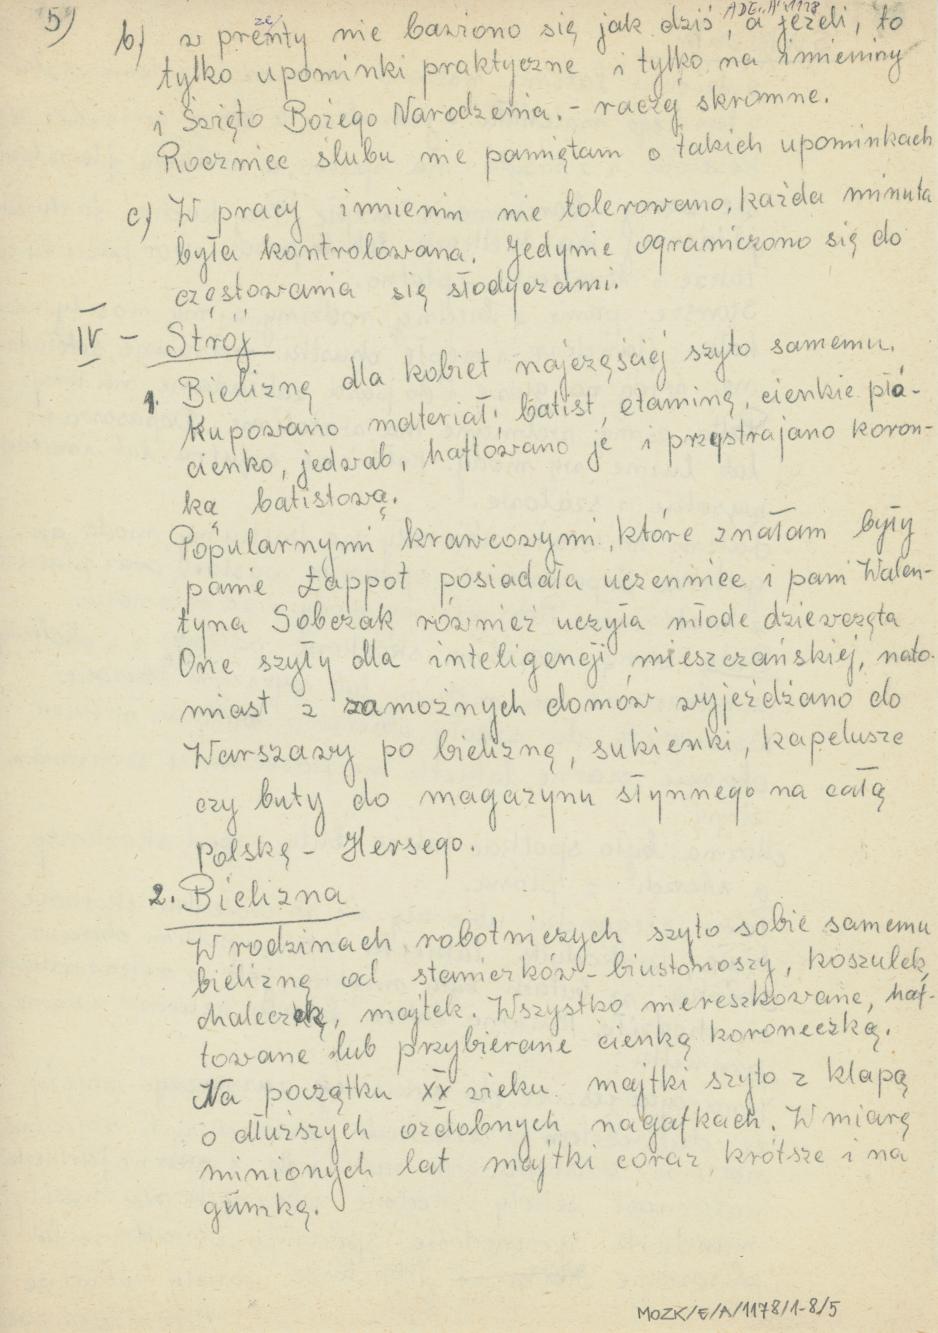 5)
ADE. A. 1178
b) w prenty nie bawiono się jak dziś, a jeżeli, to
ze
tylko upominki praktyczne i tylko na imieniny
i Święto Bożego Narodzenia. - raczej skromne.
Rocznice ślubu nie pamiętam o takich upominkach
c) W pracy imienin nie tolerowano, każda minuta
była kontrolowana. Jedynie ograniczono się do
częstowania się słodyczami.
IV - Strój
1. Bieliznę dla kobiet najczęściej szyto samemu.
Kupowano materiał; batist, etaminę, cienkie płó-
cienko, jedwab, haftowano je i przystrajano koron-
ką batistową.
Popularnymi krawcowymi, które znałam były
panie Łappot posiadała uczennice i pani Walen-
tyna Sobczak również uczyła młode dziewczęta
One szyły dla inteligencji mieszczańskiej, nato-
miast z zamożnych domów wyjeżdżano do
Warszawy po bieliznę, sukienki, kapelusze
czy buty do magazynu słynnego na całą
Polskę - Hersego.
2. Bielizna
W rodzinach robotniczych szyto sobie samemu
bieliznę od staniczków - biustonoszy, koszulek,
chaleczkę, majtek. Wszystko mereszkowane, haf-
towane lub przybierane cienką koroneczką.
Na początku XX wieku majtki szyto z klapą
o dłuższych ozdobnych nagafkach. W miarę
minionych lat majtki coraz krótsze i na
gumką.
MOZK/E/A/1178/1-8/5